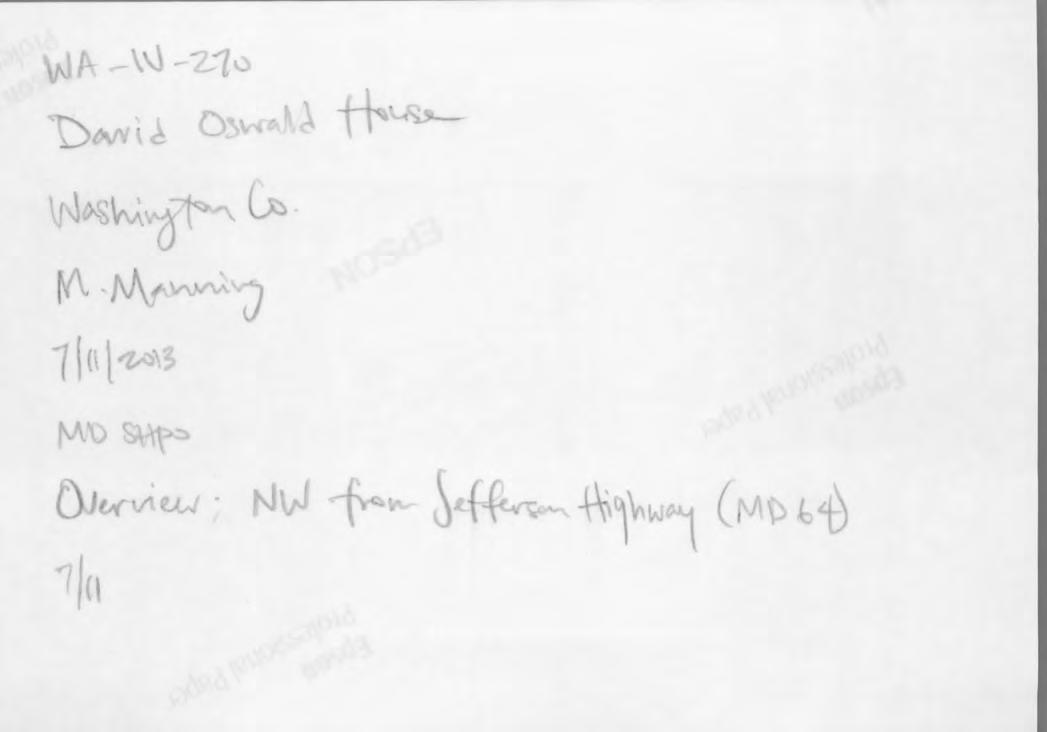 WA-IV-270
David Oswald House
Washington Co.
M. Manning
7/11/2013
MD SHPO
Overview; NW from Jefferson Highway (MD 64)
7/11
EPSON
Epson
Professional Paper
Epson
Professional Paper